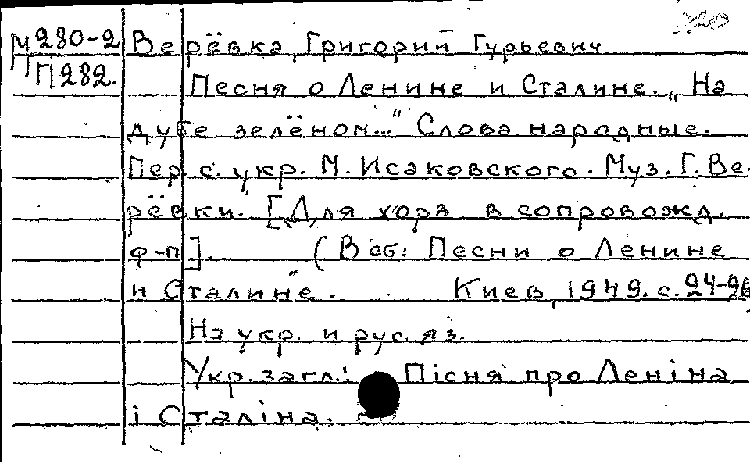 М280-2 Верёвка, Григорий Гурьевич
П282.
Песня о Ленине и Сталине. „На
дубе зелёном..." Слова народные.
Пер. с. укр. М. Исаковского. Муз. Г. Ве-
рёвки. [Для хора в сопровожд.
ф-п]. (В сб: Песни о Ленине
и Сталине. Киев, 1949. с. 94-96
На укр. и рус. яз.
Укр. загл.: Пісня про Леніна
і Сталіна.